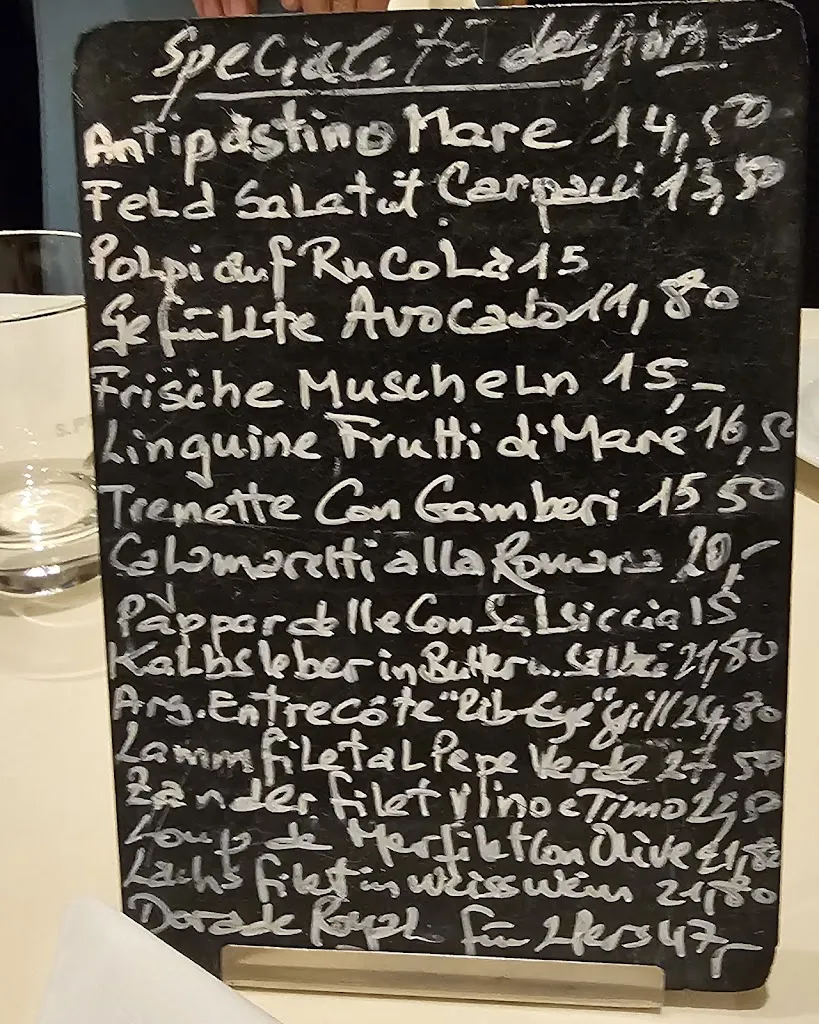 Specialità del giorno
Antipastino Mare 14,50
Feld Salat mit Carpacci 13,50
Polpi auf Rucola 15
Gefüllte Avocado 11,80
Frische Muscheln 15,-
Linguine Frutti di Mare 16,50
Trenette Con Gamberi 15 50
Calamaretti alla Romana 20,-
Pappardelle Con Salsiccia 15
Kalbsleber in Butter u. Salbei 21,80
Arg. Entrecôte "Rib-Eye" grill 24,80
Lammfilet al Pepe Verde 27,50
Zanderfilet Vino e Timo 22,50
Loup de Merfilet Con Olive 21,80
Lachsfilet in weisswein 21,80
Dorade Royal für 2 Pers 47,-